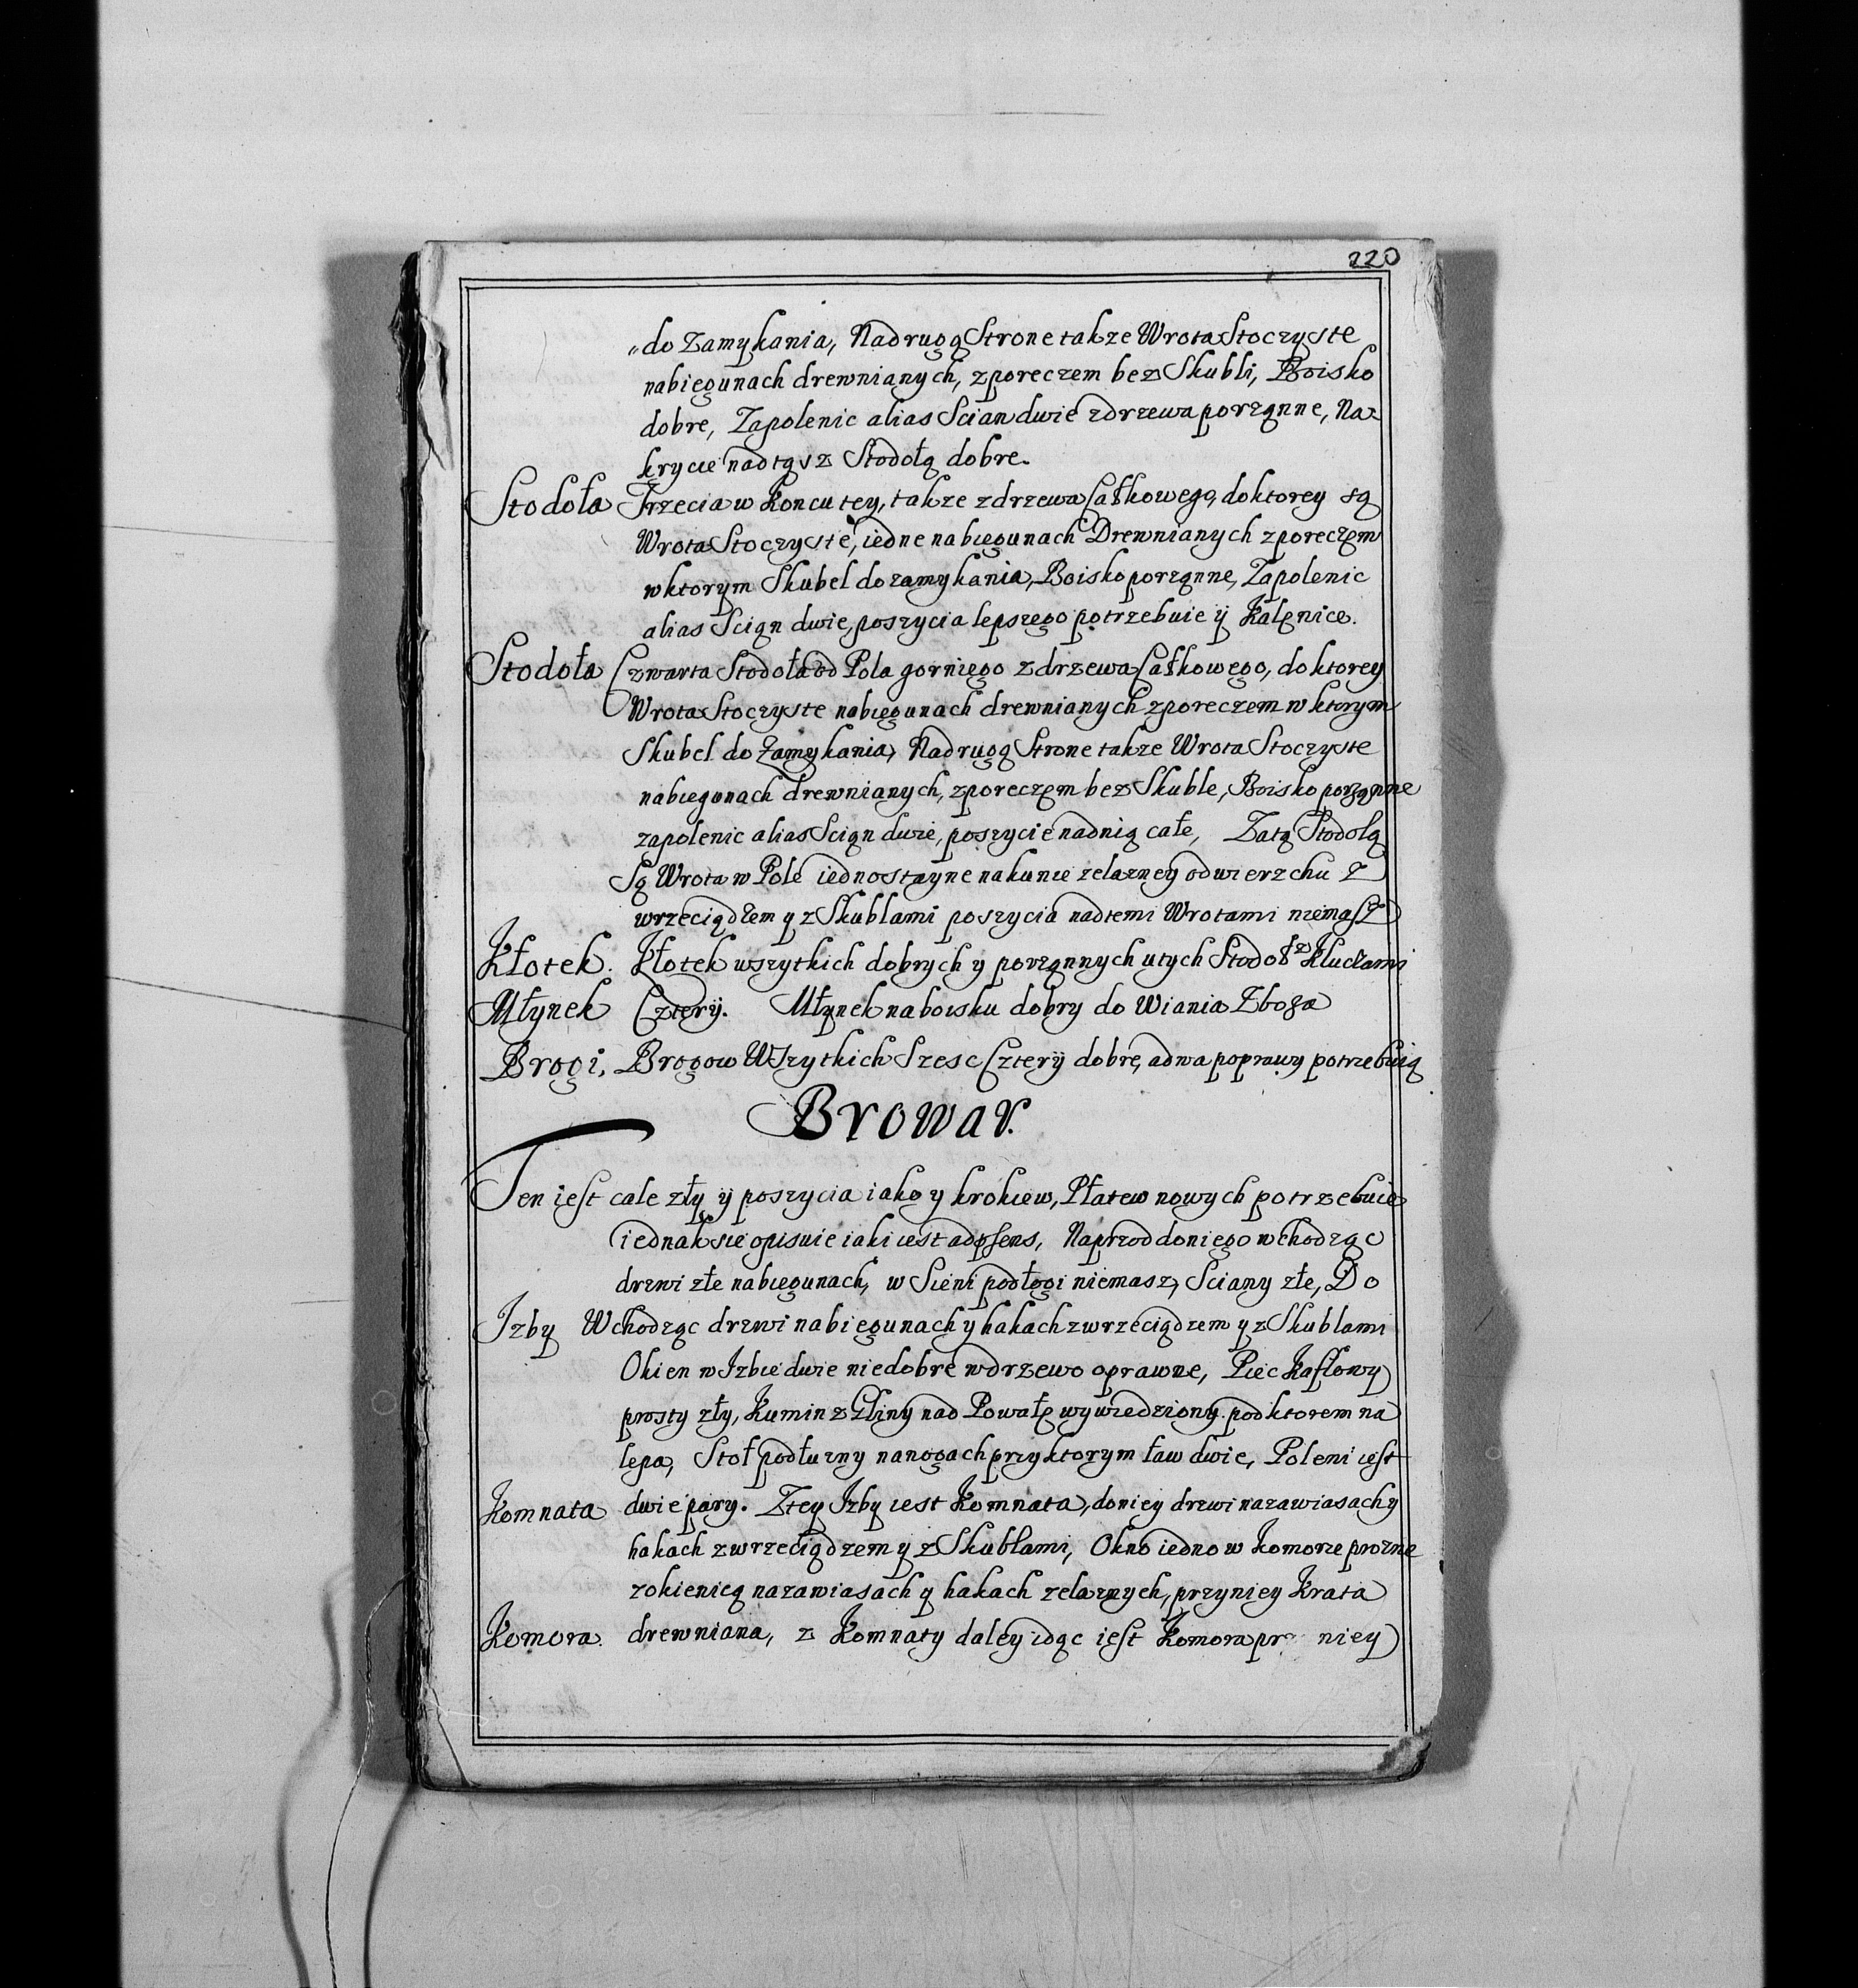 220
„do Zamykania, Na drugą Strone takze Wrota Stoczyste
na biegunach drewnianych, z poreczem bez Skubli, Boisko
dobre, Zapolenic alias Scian dwie z drzewa porzqnne, Na=
krycie nad tą usz Stodołą dobre.
Stodoła Trzecia w Koncu tey, takze z drzewa Całkowego, do ktorey są
Wrota Stoczyste, iedne na biegunach Drewnianych z poreczem
w ktorym Skubel do zamykania, Boisko porząnne, Zapolenic
alias Sciąn dwie, poszycia lepszego potrzebuie ÿ Kalęnice.
Stodoła Czwarta Stodoła od Pola gorniego z drzewa Całkowego, do ktorey
Wrota Stoczyste na biegunach drewnianych z poreczem w ktorym
Skubel do Zamykania, Na drugą Strone takze Wrota Stoczyste
na biegunach drewnianych, z poreczęm bez Skuble, Boisko porząnne
zapolenic alias Sciąn dwie, poszycie nad nią całe, Za tą Stodołą
Są Wrota w Pole iednostayne na kunie zelazney od wierzchu z
wrzeciądzem y z Skublami poszycia nad temi Wrotami niemasz
Kłotek. Kłotek wszytkich dobrych y porząnnych u tych Stodoł z Kluczami
Młynek Cztery. Młynek na boisku dobry do Wiania Zboża
Brogi, Brogow Wszytkich Szesc Czterÿ dobre, a dwa poprawy potrzebuią
Browar.
Ten iest cale zły ÿ poszycia iako y krokiew, Płatew nowych potrzebuie
iednak sie opisuie iaki iest adpsens, Naprzod do niego wchodząc
drzwi złe na biegunach, w Sieni podłogi niemasz, Sciany złe, Do
Izby Wchodząc drzwi na biegunach y hakach z wrzeciądzem y z Skublami
Okien w Izbie dwie niedobre w drzewo oprawne, Piec Kaflowy
prosty zły, Kumin z Gliny nad Powałę wywiedziony pod ktorem na
lepa, Stoł podłuzny na nogach przy ktorym ław dwie, Poleni iest
Komnata dwie pary. Z tey Izby iest Komnata, do niey drzwi na zawiasach y
hakach z wrzeciądzem y z Skubłami, Okno iedno w Komorze prozne
z okienicą na zawiasach y hakach zelaznych, przy niey Krata
Komora. drewniana, z Komnaty daley idąc iest Komora prz niey